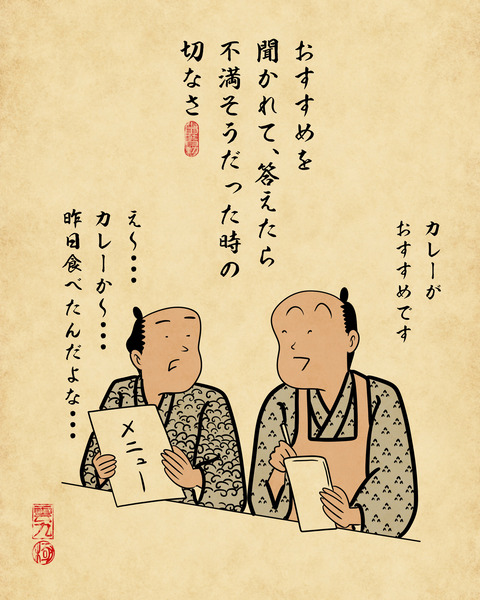 おすすめを
聞かれて、答えたら
不満そうだった時の
切なさ
カレーが
おすすめです
え〜・・・
カレーか〜・・・
昨日食べたんだよな・・・
メニュー